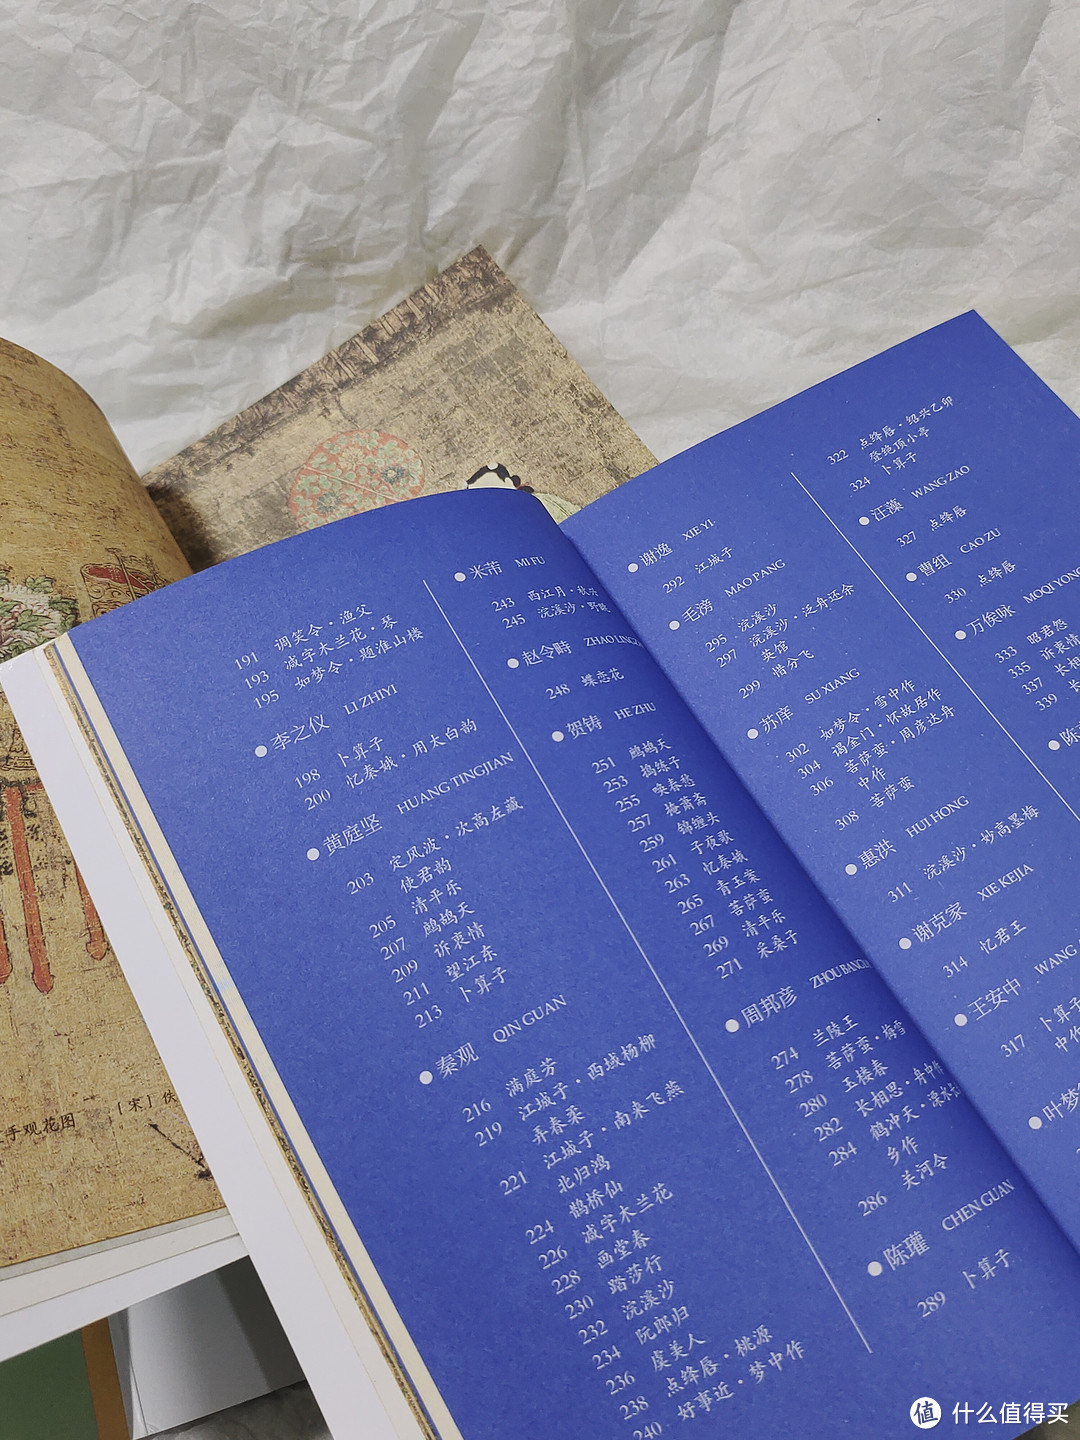 191 调笑令·渔父
193 减字木兰花·琴
195 如梦令·题淮山楼
李之仪 LI ZHIYI
198 卜算子
200 忆秦娥·用太白韵
黄庭坚 HUANG TINGJIAN
203 定风波·次高左藏
使君韵
205 清平乐
207 鹧鸪天
209 诉衷情
211 望江东
213 卜算子
秦观 QIN GUAN
216 满庭芳
219 江城子·西城杨柳
弄春柔
221 江城子·南来飞燕
北归鸿
224 鹊桥仙
226 减字木兰花
228 画堂春
230 踏莎行
232 浣溪沙
234 阮郎归
236 虞美人
238 点绛唇·桃源
240 好事近·梦中作
米芾 MI FU
243 西江月·秋兴
245 浣溪沙·野眺
赵令畤 ZHAO LING
248 蝶恋花
贺铸 HE ZHU
251 鹧鸪天
253 捣练子
255 唤春愁
257 掩萧斋
259 锦缠头
261 子夜歌
263 忆秦娥
265 青玉案
267 菩萨蛮
269 清平乐
271 采桑子
周邦彦 ZHOU BANG
274 兰陵王
278 菩萨蛮·梅雪
280 玉楼春
282 长相思·舟中
284 鹤冲天·溧水
乡作
286 关河令
陈瓘 CHEN GUAN
289 卜算子
谢逸 XIE YI
292 江城子
毛滂 MAO PANG
295 浣溪沙
297 浣溪沙·泛舟还余
英馆
299 惜分飞
苏庠 SU XIANG
302 如梦令·雪中作
304 谒金门·怀故居作
306 菩萨蛮·周彦达舟
中作
308 菩萨蛮
惠洪 HUI HONG
311 浣溪沙·妙高墨梅
谢克家 XIE KEJIA
314 忆君王
王安中 WANG
317 卜算子
中作
叶梦
322 点绛唇·绍兴乙卯
登绝顶小亭
324 卜算子
汪藻 WANG ZAO
327 点绛唇
曹组 CAO ZU
330 点绛唇
万俟咏 MOQI YONG
333 昭君怨
335 诉衷情
337 长相
339 长
陈
手观花图 [宋]佚
值 什么值得买